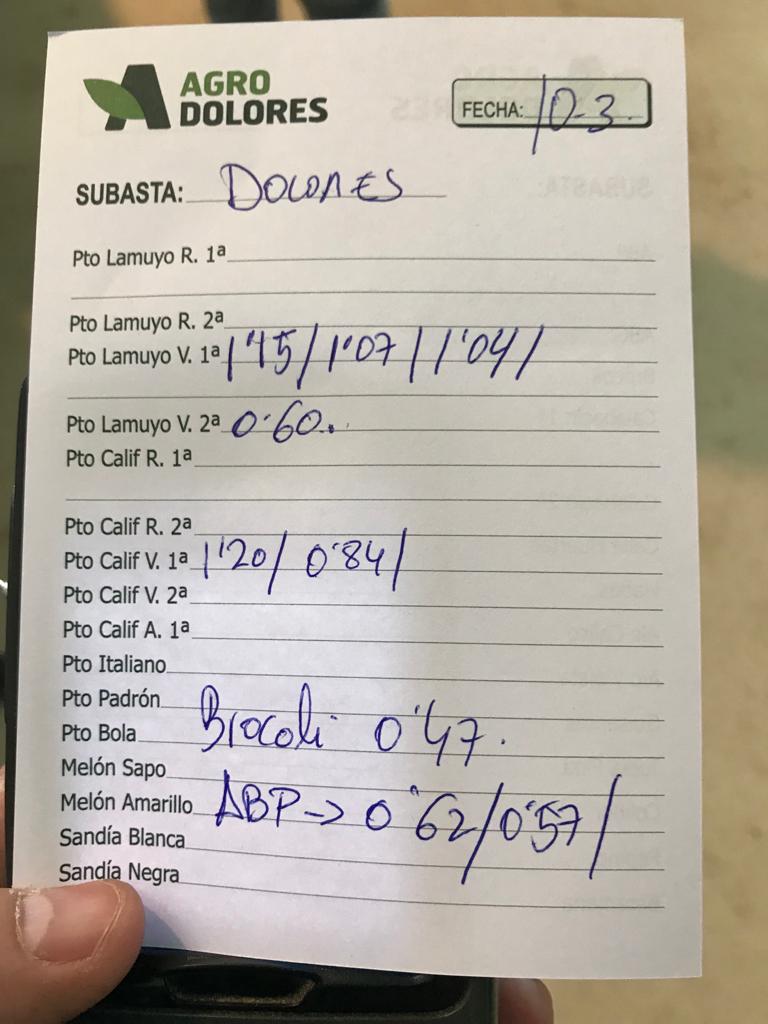 AGRO
DOLORES
FECHA: 10-3.
SUBASTA: DOLORES
Pto Lamuyo R. 1ª
Pto Lamuyo R. 2ª
Pto Lamuyo V. 1ª 1'15/1'07/1'04/
Pto Lamuyo V. 2ª 0'60.
Pto Calif R. 1ª
Pto Calif R. 2ª
Pto Calif V. 1ª 1'20/ 0'84/
Pto Calif V. 2ª
Pto Calif A. 1ª
Pto Italiano
Pto Padrón
Pto Bola Brocoli 0'47.
Melón Sapo
Melón Amarillo ABP -> 0'62/0'57/
Sandía Blanca
Sandía Negra